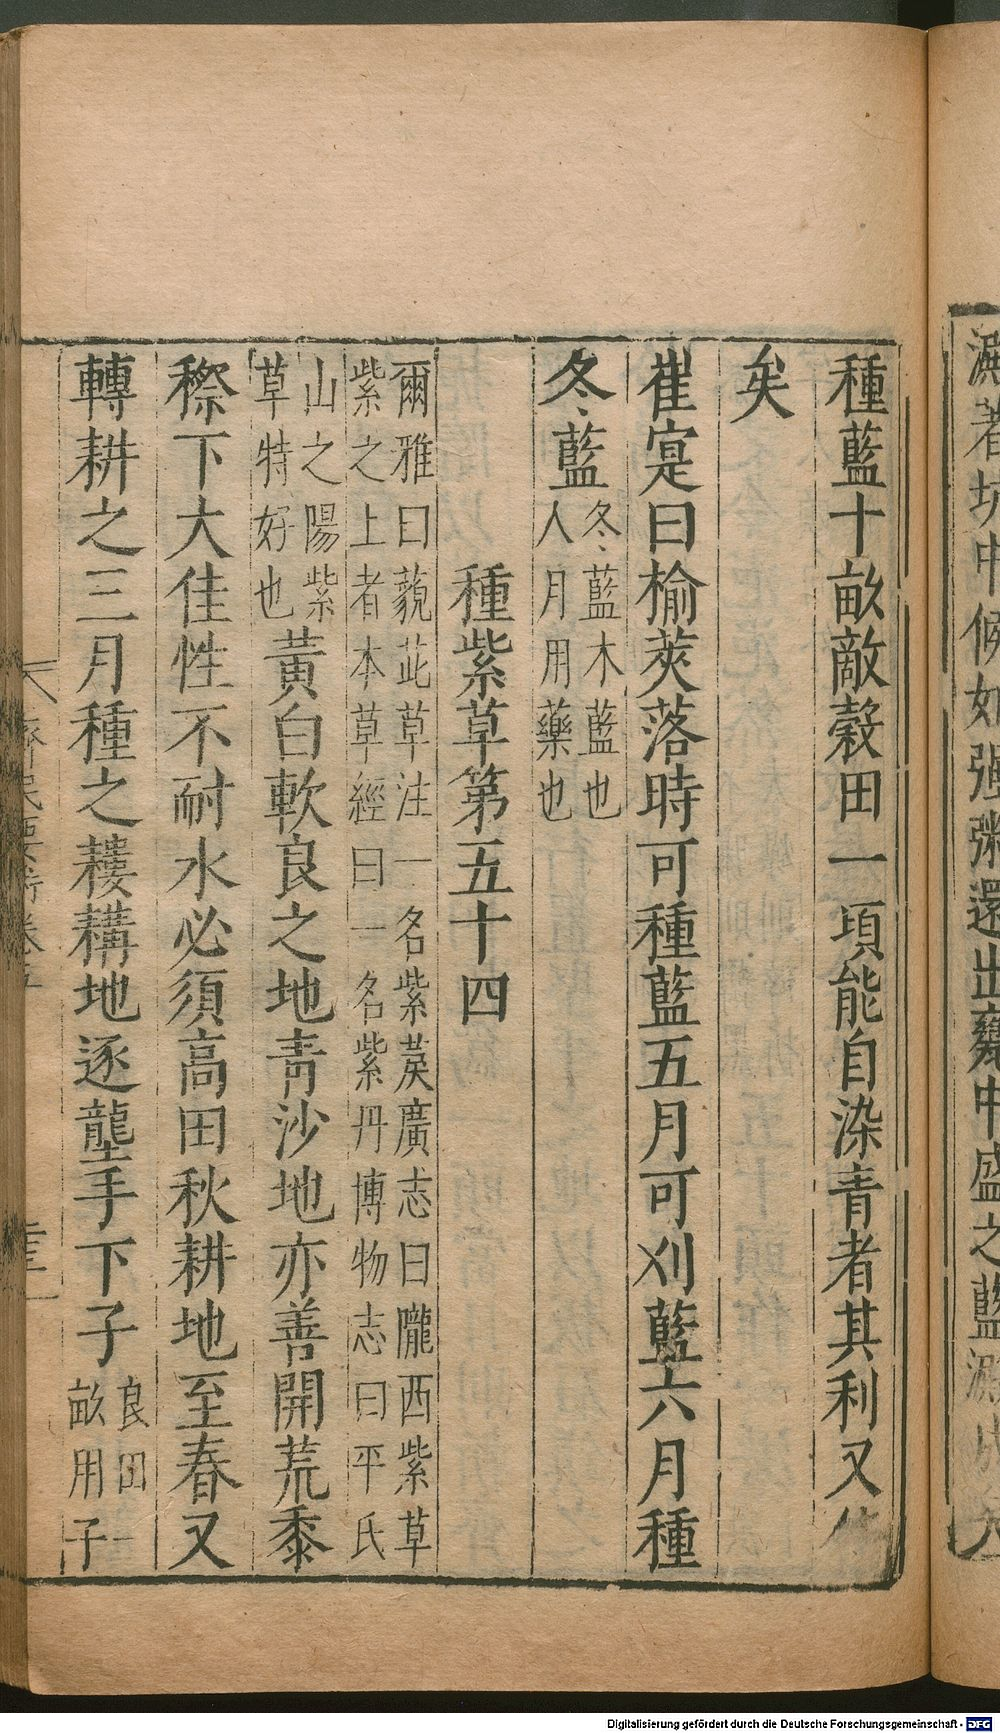 澱著坑中候如强粥還出甕中盛之藍澱成矣
種藍十畝敵穀田一頃能自染青者其利又
矣
崔寔曰榆莢落時可種藍五月可刈藍六月種
冬藍
冬藍木藍也
人月用藥也
種紫草第五十四
爾雅曰藐茈草注一名紫䓞廣志曰隴西紫草
紫之上者本草經曰一名紫丹博物志曰平氏
山之陽紫
草特好也
黃白軟良之地青沙地亦善開荒黍
穄下大佳性不耐水必須高田秋耕地至春又
轉耕之三月種之耬耩地逐壟手下子
良田一
畝用子
齊民要術卷五
Digitalisierung gefördert durch die Deutsche Forschungsgemeinschaft - DFG